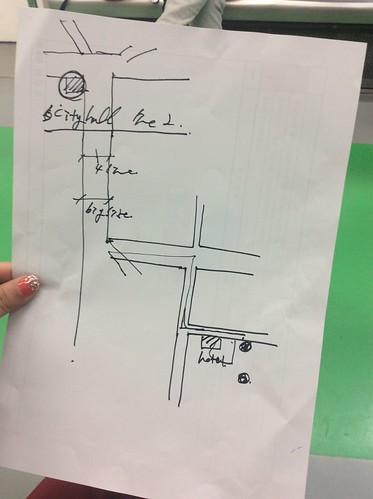 City hall line 2.
4 line
big size
hotel